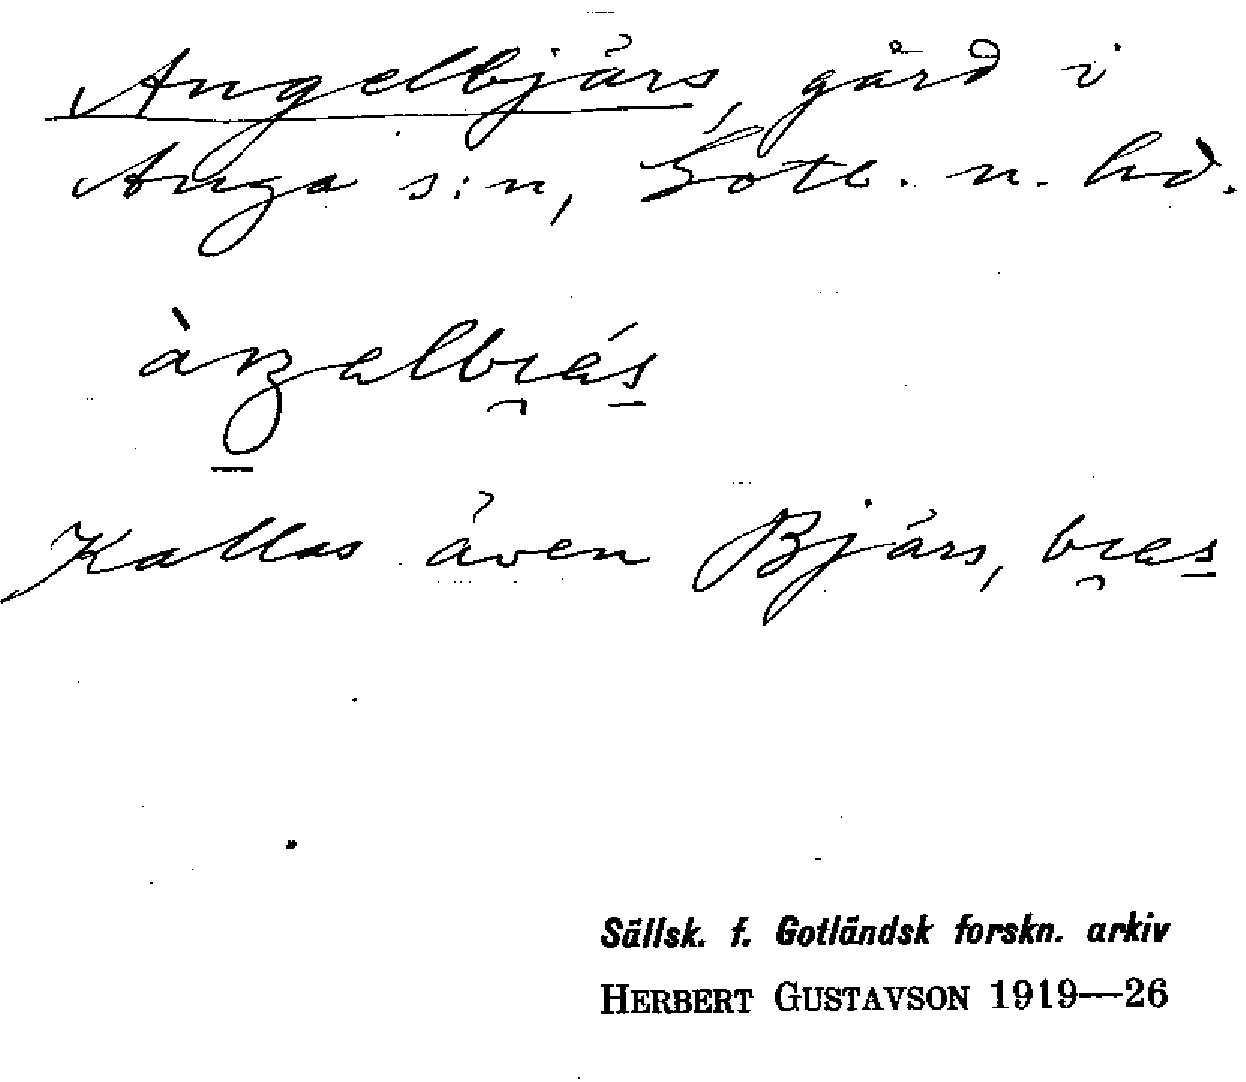 Angelbjärs, gård i
Anga s:n, Gotl. n. hd.
Kallas även Bjärs,
Sällsk. f. Gotländsk forskn. arkiv
HERBERT GUSTAVSON 1919—26